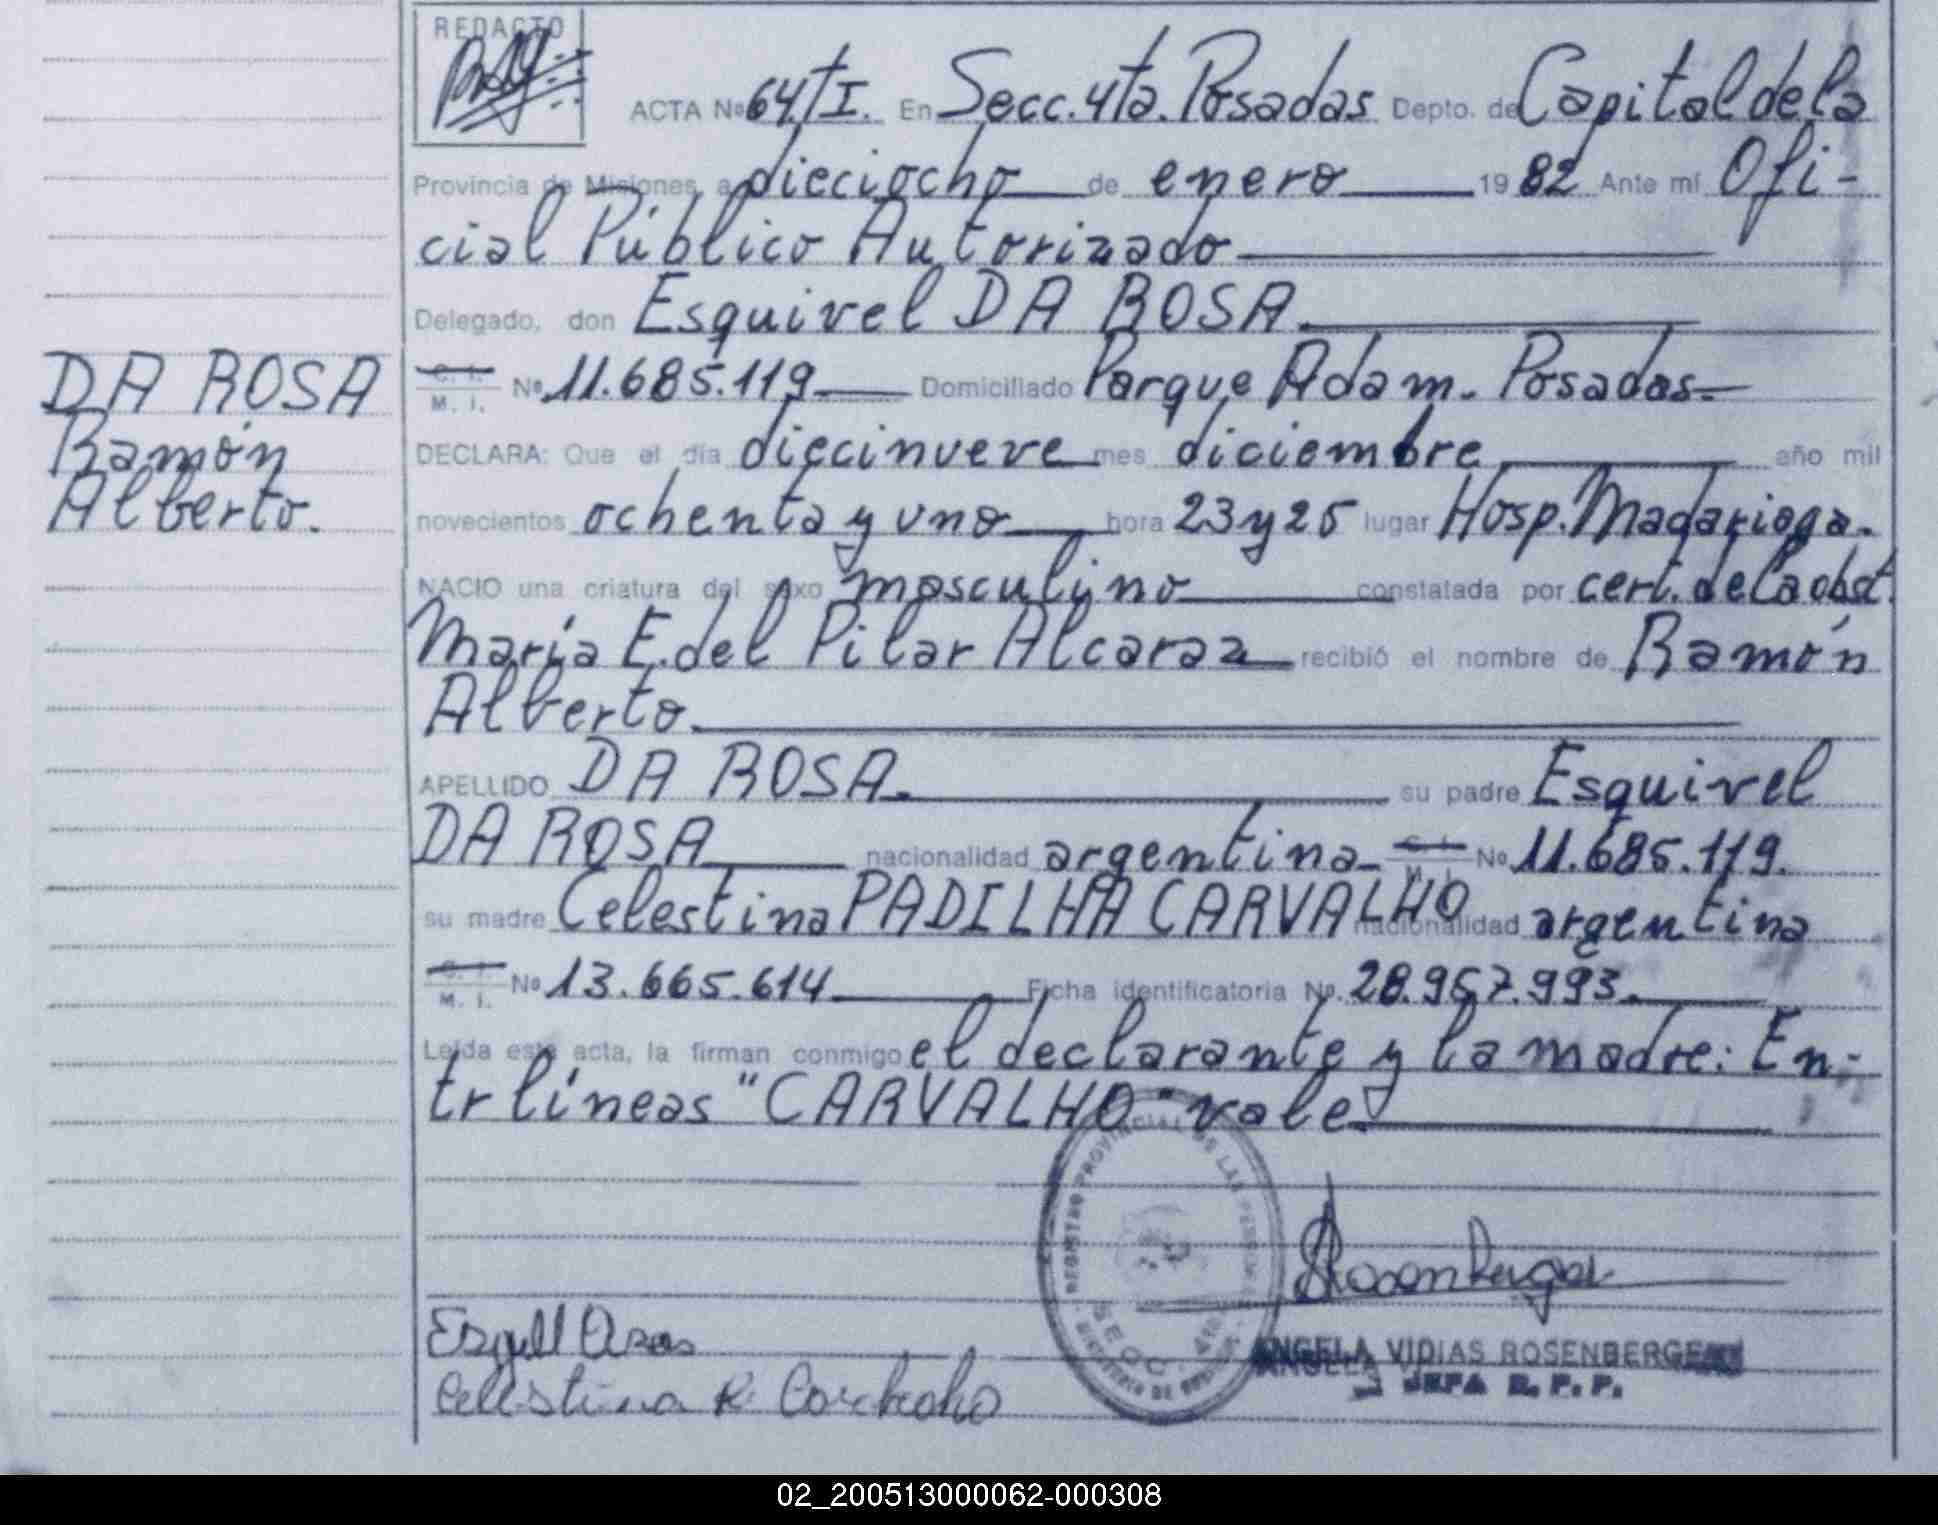 REDACTO
ACTA Nº 64/TI. En Secc. 4ta. Posadas Depto. de Capital de la
Provincia de Misiones, a dieciocho de enero 1982 Ante mí Ofi-
cial Público Autorizado
Delegado, don Esquivel DA ROSA.
DA ROSA
Ramón
Alberto.
C. I. M. I. Nº 11.685.119 Domiciliado Parque Adam. Posadas
DECLARA: Que el día diecinueve mes diciembre año mil
novecientos ochenta y uno hora 23 y 25 lugar Hosp. Madariaga.
NACIO una criatura del sexo masculino constatada por cert. de la obst.
María E. del Pilar Alcaraz recibió el nombre de Ramón
Alberto.
APELLIDO DA ROSA. su padre Esquivel
DA ROSA nacionalidad argentina C. I. M. I. Nº 11.685.119.
su madre Celestina PADILHA CARVALHO nacionalidad argentina
C. I. M. I. Nº 13.665.614 Ficha identificatoria Nº. 28.957.993.
Leída esta acta, la firman conmigo el declarante y la madre: En-
tr líneas "CARVALHO" vale
REGISTRO PROVINCIAL DE LAS PERSONAS
SECC. 4ta
Rosenberger
ANGELA VIDIAS ROSENBERGER
JEFA R. P. P.
Celestina
02_200513000062-000308